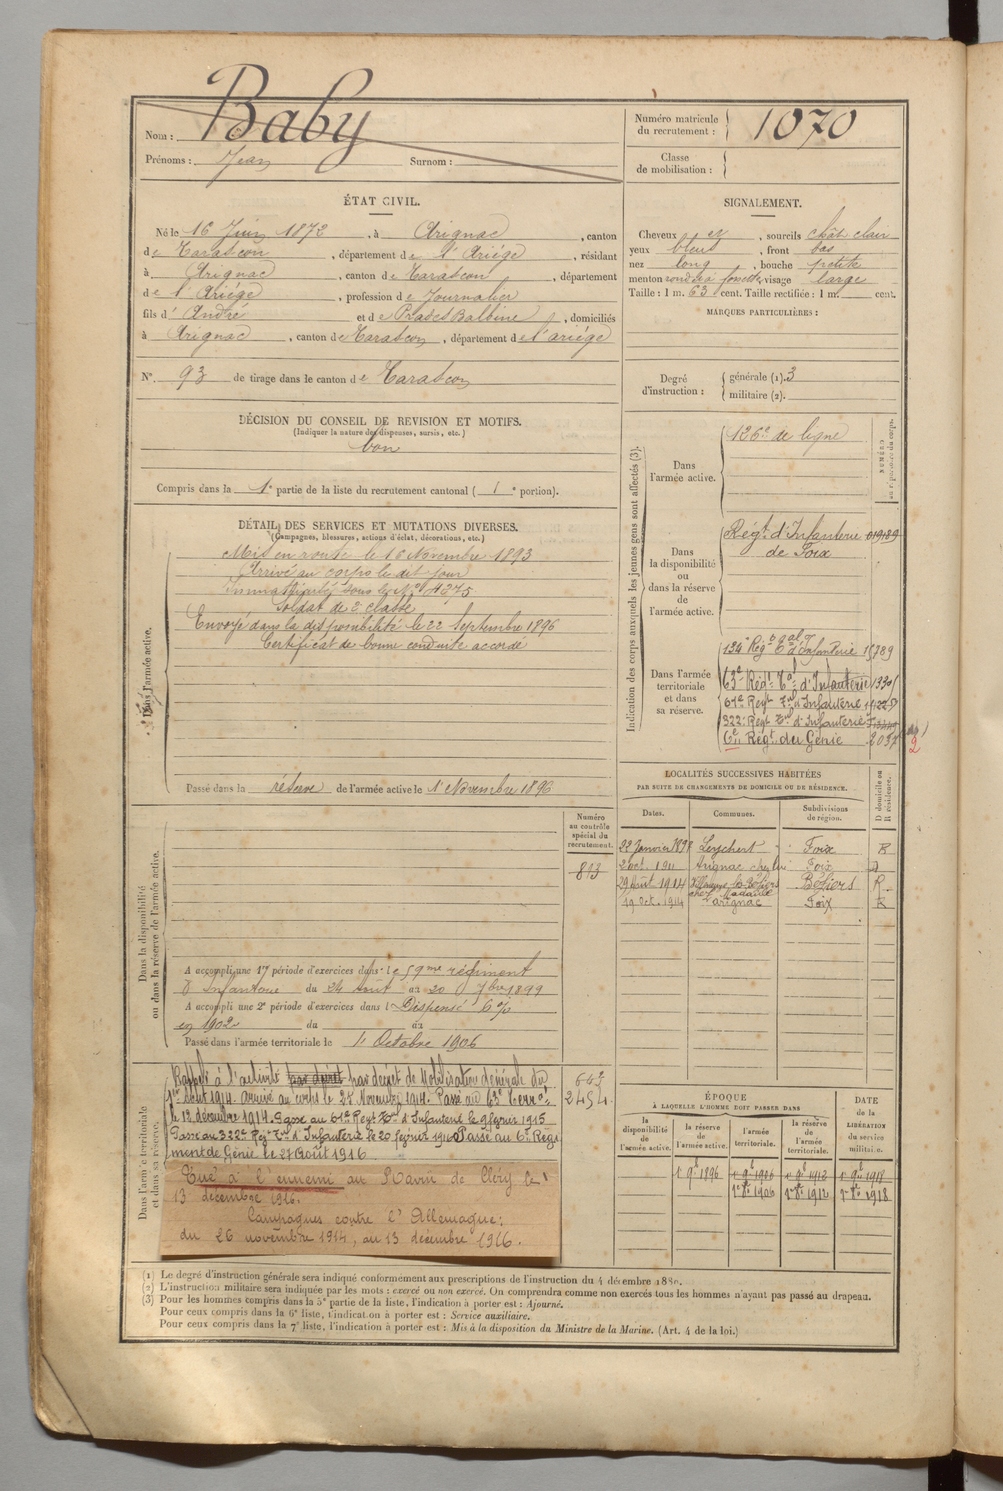 Nom : Baby
Prénoms : Jean Surnom :
Numéro matricule du recrutement : 1070
Classe de mobilisation :
ÉTAT CIVIL.
Né le 16 Juin 1872, à Arignac, canton
de Tarascon, département de l'Ariège, résidant
à Arignac, canton de Tarascon, département
de l'Ariége, profession de Journalier
fils d' André et de Prades Balbine, domiciliés
à Arignac, canton de Tarascon, département de l'ariége
N° 93 de tirage dans le canton de Tarascon
SIGNALEMENT.
Cheveux et, sourcils chât clair
yeux bleus, front bas
nez long, bouche petite
menton rond à fossette, visage large
Taille : 1 m. 63 cent. Taille rectifiée : 1 m. cent.
MARQUES PARTICULIÈRES :
Degré d'instruction : générale (1). 3
militaire (2).
DÉCISION DU CONSEIL DE REVISION ET MOTIFS.
(Indiquer la nature des dispenses, sursis, etc.)
bon
Compris dans la 1e partie de la liste du recrutement cantonal ( 1 e portion).
DÉTAIL DES SERVICES ET MUTATIONS DIVERSES.
(Campagnes, blessures, actions d'éclat, décorations, etc.)
Dans l'armée active.
Mis en route le 16 Novembre 1893
Arrivé au corps le dit jour
Immatriculé sous le N° 4275
Soldat de 2e classe
Envoyé dans la disponibilité le 22 Septembre 1896
Certificat de bonne conduite accordé
Passé dans la réserve de l'armée active le 1er Novembre 1896
Indication des corps auxquels les jeunes gens sont affectés (3).
NUMÉRO
Dans l'armée active.
126e de ligne
Dans la disponibilité ou dans la réserve de l'armée active.
Régt d'Infanterie
de Foix
Dans l'armée territoriale et dans sa réserve.
134e Régt Tal d'Infanterie
63e Régt Tal d'Infanterie
61e Regt Tal d'Infanterie
322e Regt Tal d'Infanterie
6e Régt du Génie
LOCALITÉS SUCCESSIVES HABITÉES
PAR SUITE DE CHANGEMENTS DE DOMICILE OU DE RÉSIDENCE.
Dates. Communes. Subdivisions de région. D domicile ou R résidence.
22 Janvier 1898 Leychert Foix R
2 oct. 1911 Arignac Foix D
29 Août 1914 Béziers R
19 Oct. 1914 arignac Foix R
Dans la disponibilité ou dans la réserve de l'armée active.
Numéro au contrôle spécial du recrutement.
813
A accompli une 1re période d'exercices dans le 59me régiment
d'Infanterie du 24 Août au 20 7bre 1899
A accompli une 2e période d'exercices dans l Dispensé 6 %
en 1902 du au
Passé dans l'armée territoriale le 1er Octobre 1906
Dans l'armée territoriale et dans sa réserve.
643
2454
Rappelé à l'activité par décret par décret de Mobilisation Générale du
1er Août 1914. arrivé au corps le 27 Novembre 1914. Passé au 63e Terral
le 12 décembre 1914. Passé au 61e Regt Tal d'Infanterie le 9 février 1915
Passé au 322e Regt Tal d'Infanterie le 20 février 1916 Passé au 6e Régi
ment de Génie le 27 Août 1916
Tué à l'ennemi au Ravin de Cléry le
13 décembre 1916.
Campagnes contre l'Allemagne :
du 26 novembre 1914, au 13 décembre 1916.
ÉPOQUE
À LAQUELLE L'HOMME DOIT PASSER DANS
la disponibilité de l'armée active. la réserve de l'armée active. l'armée territoriale. la réserve de l'armée territoriale.
DATE de la LIBÉRATION du service militaire.
1er 9bre 1896 1er 9bre 1906 1er 9bre 1912 1er 9bre 1918
1er 8bre 1906 1er 8bre 1912 1er 8bre 1918
(1) Le degré d'instruction générale sera indiqué conformément aux prescriptions de l'instruction du 4 décembre 1880.
(2) L'instruction militaire sera indiquée par les mots : exercé ou non exercé. On comprendra comme non exercés tous les hommes n'ayant pas passé au drapeau.
(3) Pour les hommes compris dans la 5e partie de la liste, l'indication à porter est : Ajourné.
Pour ceux compris dans la 6e liste, l'indication à porter est : Service auxiliaire.
Pour ceux compris dans la 7e liste, l'indication à porter est : Mis à la disposition du Ministre de la Marine. (Art. 4 de la loi.)